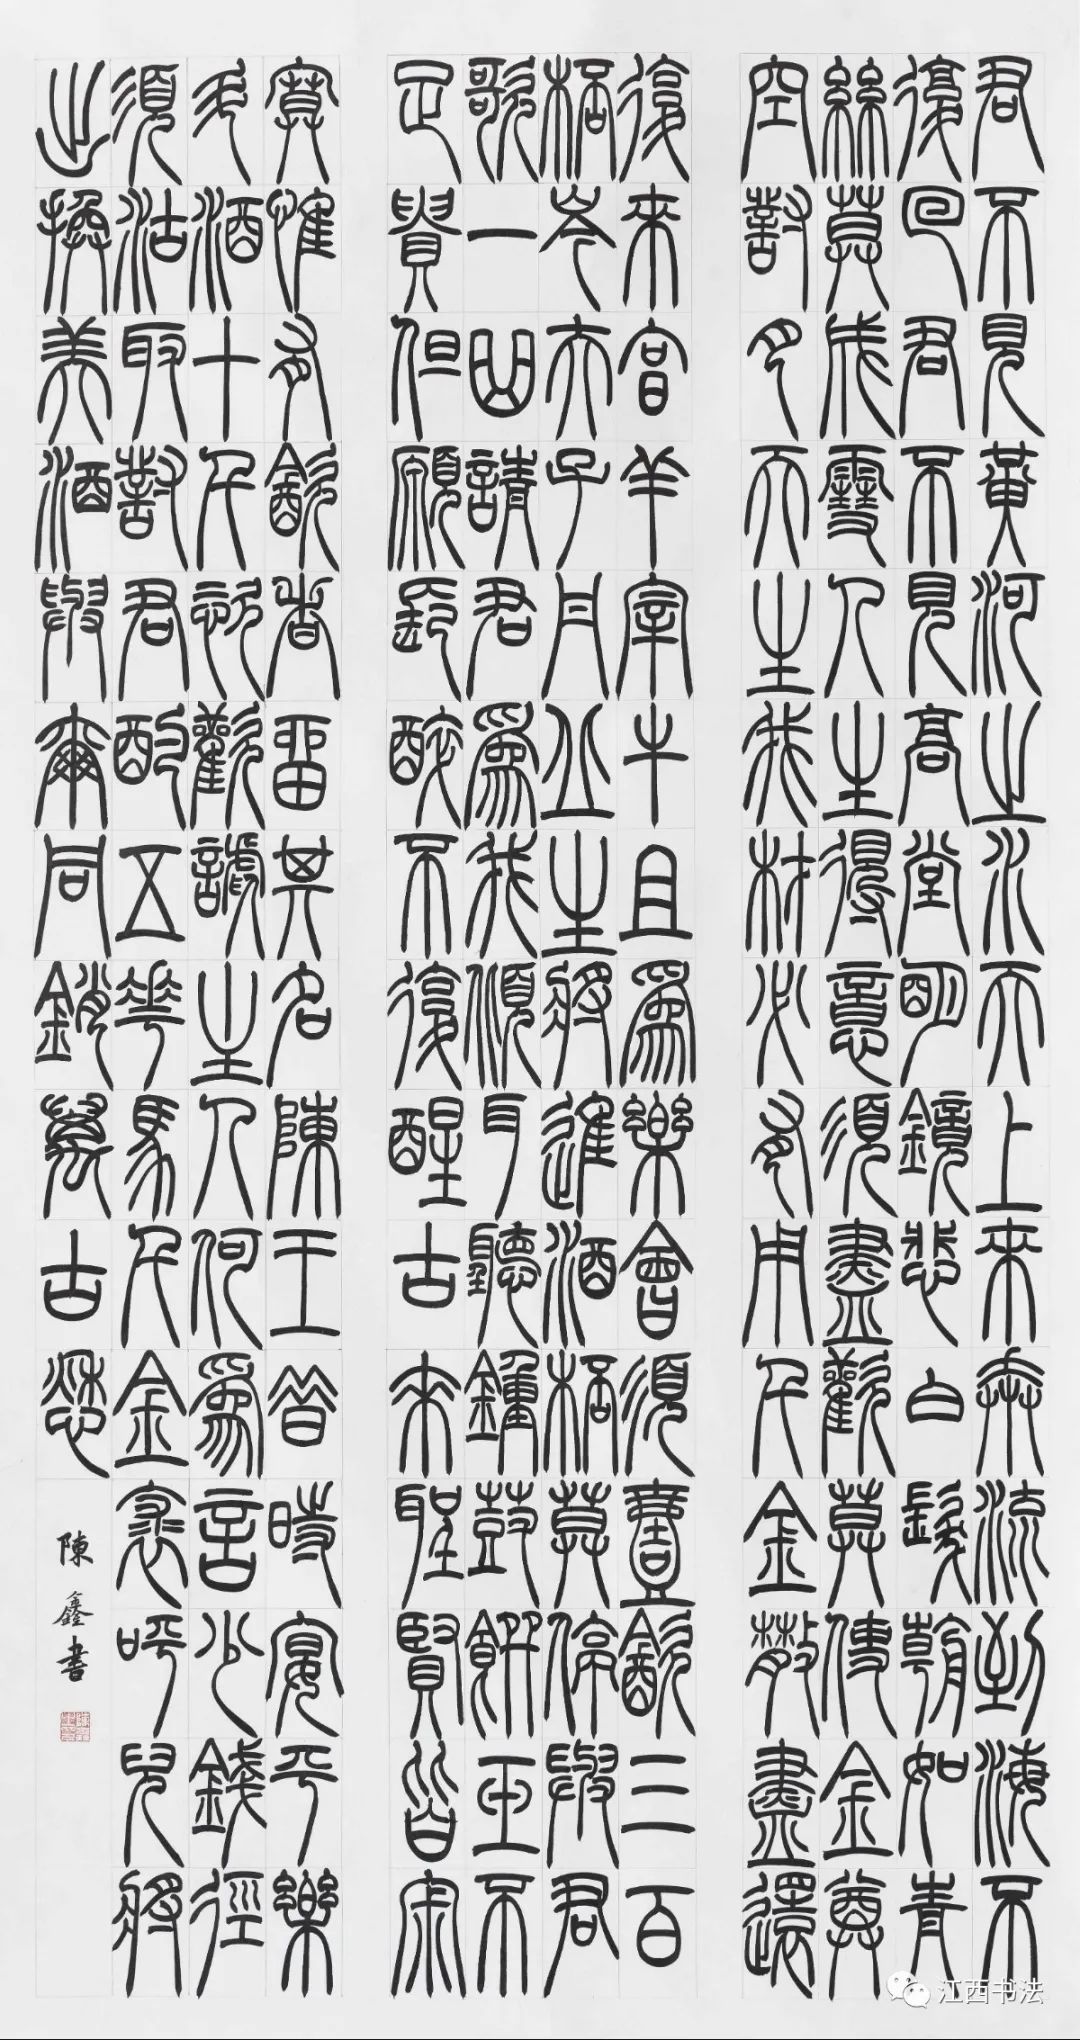 君不見黃河之水天上來奔流到海不
復回君不見高堂明鏡悲白髮朝如青
絲莫成雪人生得意須盡歡莫使金尊
空對月天生我材必有用千金散盡還
復來亯羊宰牛且爲樂會須壹飲三百
桮岑夫子丹丘生將進酒桮莫停與君
歌一曲請君爲我傾耳聽鐘鼓饌玉不
足貴但願長醉不復醒古來聖賢皆寂
寞惟有飲者留其名陳王昔時宴平樂
斗酒十千恣歡謔主人何爲言少錢徑
須沽取對君酌五花馬千金裘呼兒將
出換美酒與爾同銷萬古愁
陳鑫書
江西书法